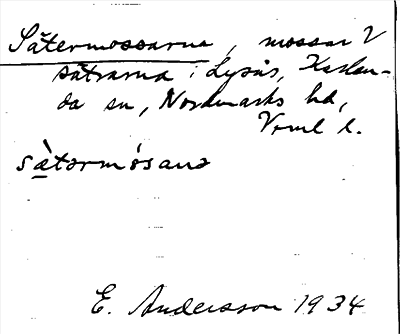 Sätermossarna, mossar V
sätrarna i Lysås, Karlan-
da sn, Nordmarks hd,
Vrml l.
sä̀tərmósanə
E. Andersson 1934